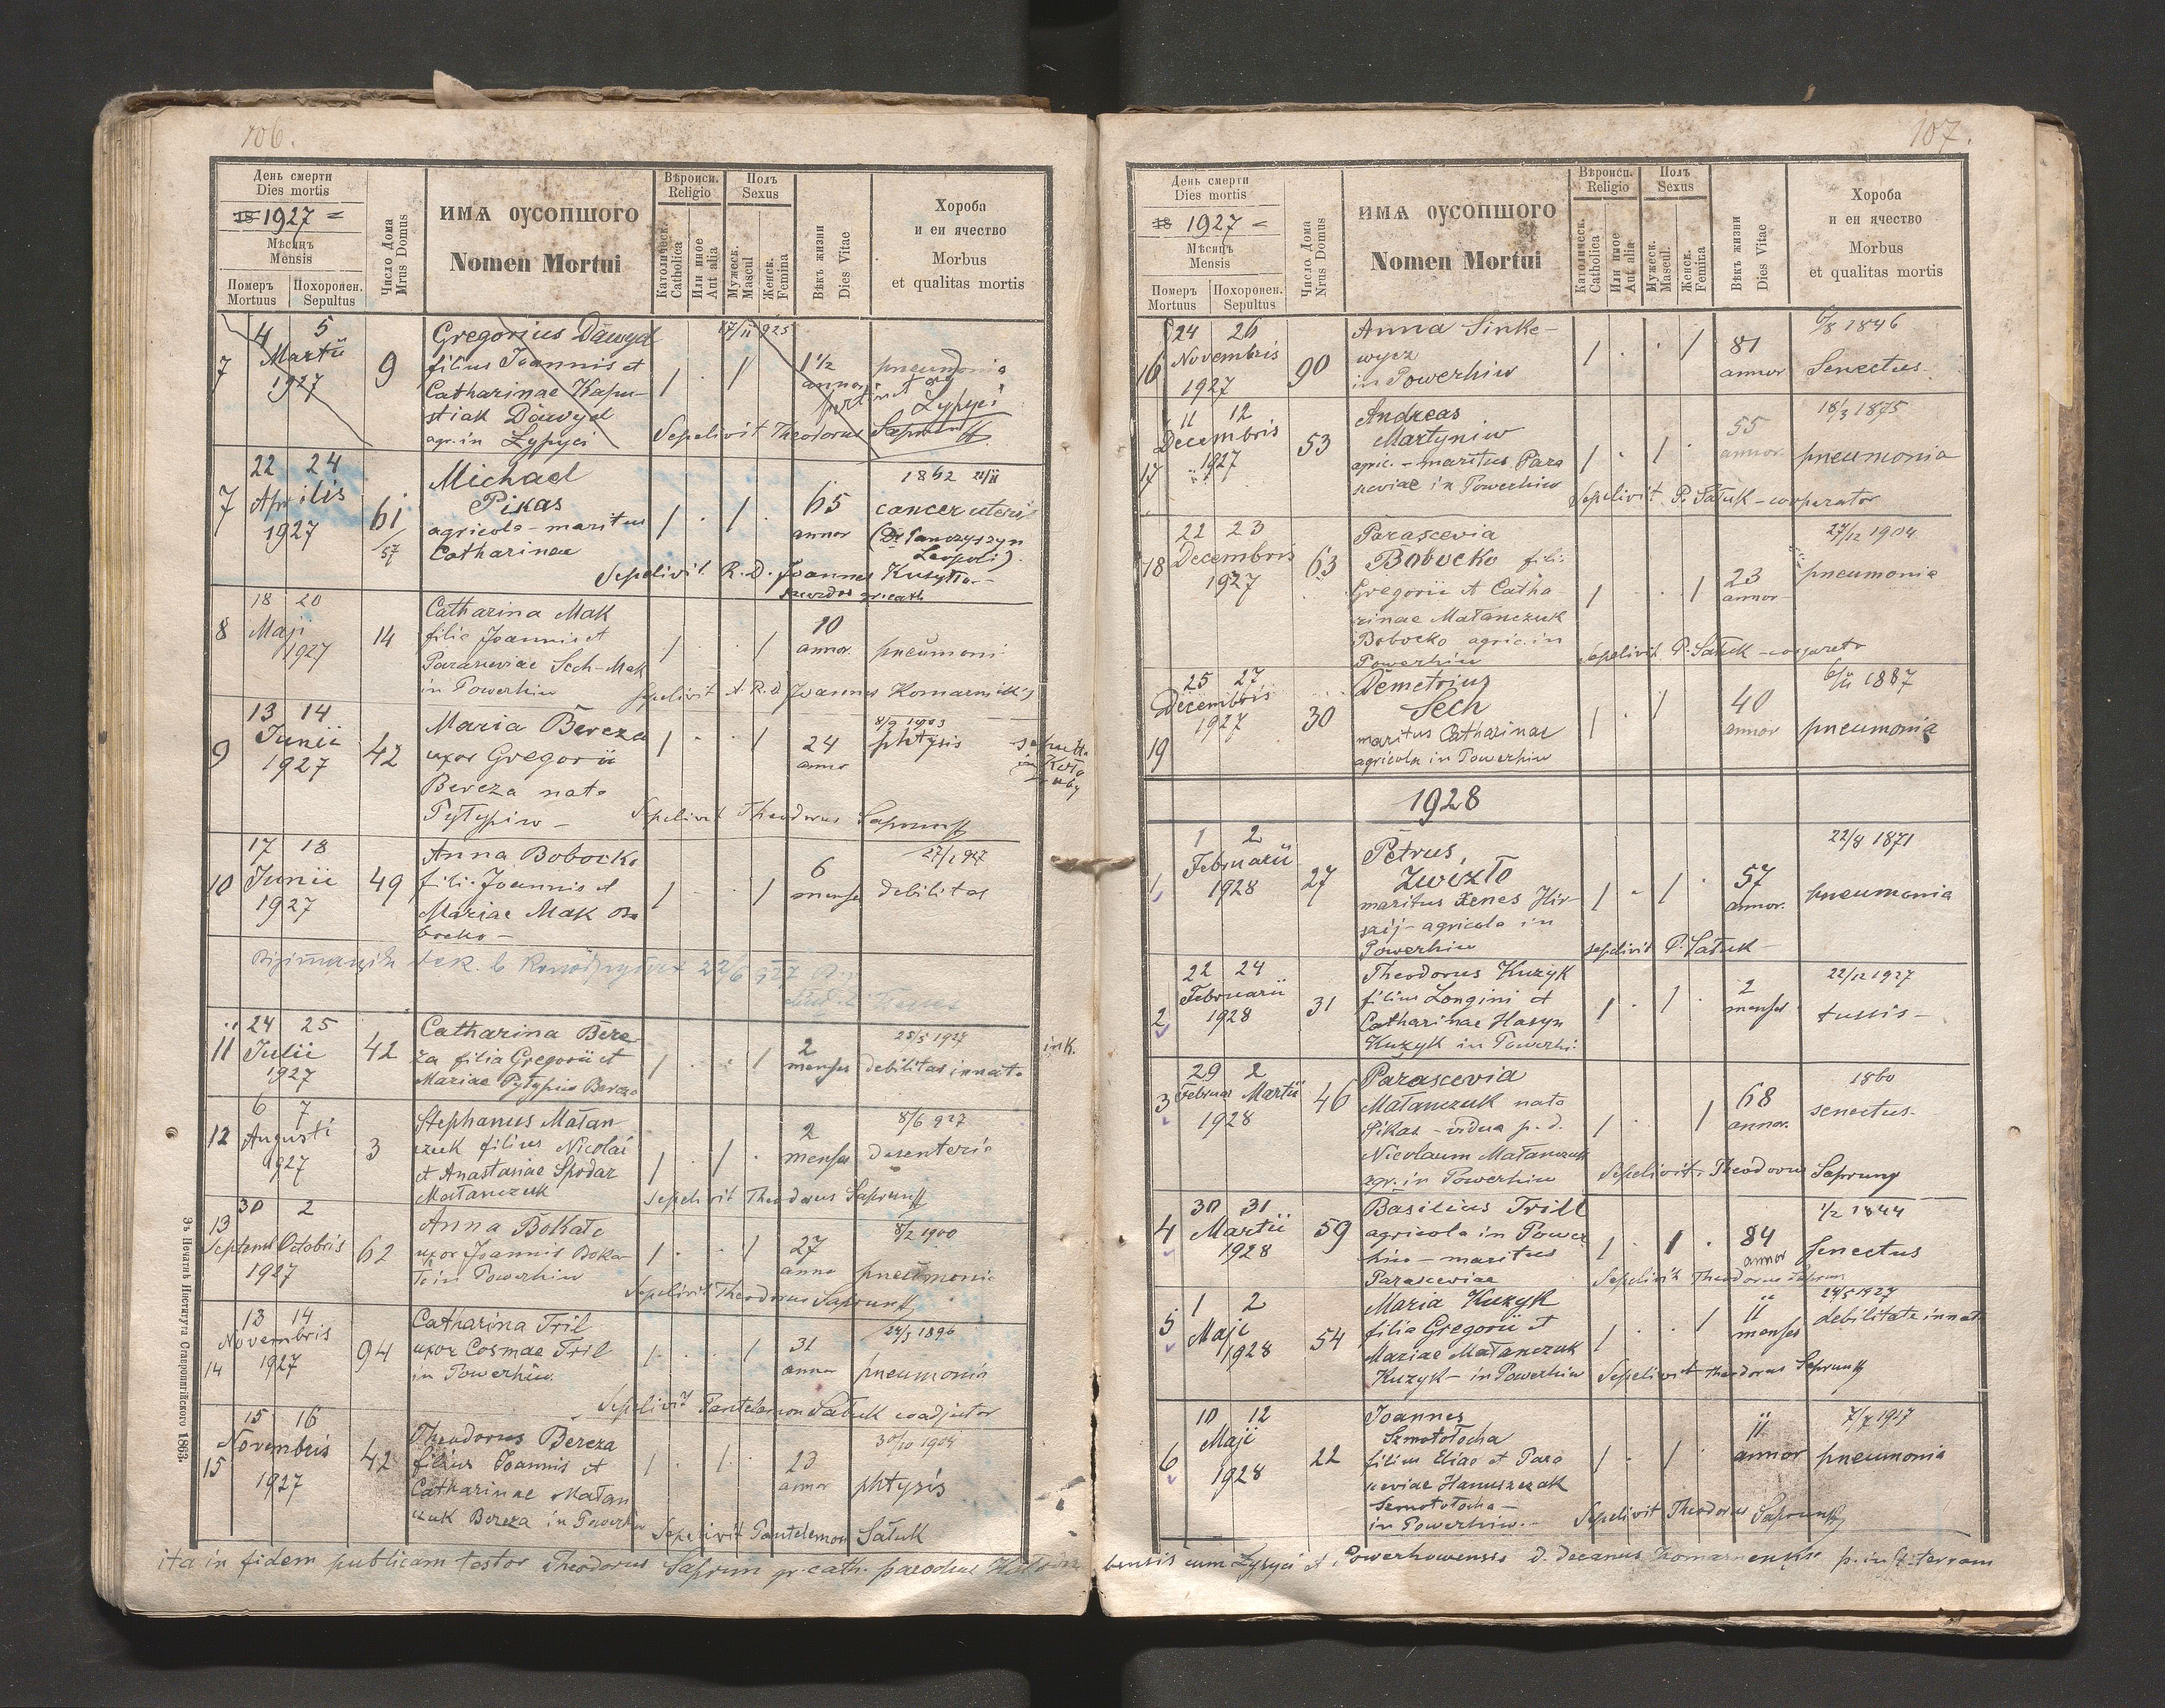 106.
День смерти
Dies mortis
18 1927 =
Мѣсяцъ
Mensis
Померъ
Mortuus
Похоронен.
Sepultus
Число Дома
Mrus Domus
ИМА ОУСОПШОГО
Nomen Mortui
Вѣроисп.
Religio
Католическ.
Catholica
Или иное
Aut alia
Полъ
Sexus
Мужеск.
Mascul
Женск.
Femina
Вѣкъ жизни
Dies Vitae
Хороба
и еи ячество
Morbus
et qualitas mortis
7
4 5
Martii
1927
9
Gregorius Dawyd
filius Joannis et
Catharinae Kapu-
stiak Dawyd
agr. in Łypyci
1 . 1
17/II 925
1 1/2
annor
pneumonia
pertinet ad
Łypyci
Sepelivit Theodorus Saprun
7
22 24
Aprilis
1927
61
/57
Michael
Pikas
agricola - maritus
Catharinae
1 . 1 .
65
annor
1862 21/II
cancer uteri
(Dr Panczyszyn
Leopoli)
Sepelivit R. D. Joannes Kusyłło -
8
18 20
Maji
1927
14
Catharina Mak
filia Joannis et
Parasceviae Sech - Mak
in Powerhiw
1 . . 1
10
annor.
pneumoni
Sepelivit A. R. D Joannes Komarnickij
9
13 14
Junii
1927
42
Maria Bereza
uxor Gregorii
Bereza nata
Pyłypiw -
1 . . 1
24
anno
8/9 1903
phtysis
sepulta
in Koło
duby
Sepelivit Theodorus Saprun
10
17 18
Junii
1927
49
Anna Bobocko
fili. Joannis et
Mariae Mak Bo
bocko -
1 . . 1
6
menses
27/1 927
debilitas
11
24 25
Julii
1927
42
Catharina Bere-
za filia Gregorii et
Mariae Pyłypiw Bereza
1 . . 1
2
menses
25/5 1927
debilitas innata
in K.
12
6 7
Augusti
1927
3
Stephanus Małan
czuk filius Nicolai
et Anastasiae Spodar
Małanczuk
1 . 1 .
2
menses
8/6 927
desenteria
Sepelivit Theodorus Saprun
13
30 2
Septemb Octobris
1927
62
Anna Bokało
uxor Joannis Boka
ło in Powerhiw
1 . . 1
27
anno
8/2 1900
pneumonia
Sepelivit Theodorus Saprun
14
13 14
Novembris
1927
94
Catharina Tril
uxor Cosmae Tril
in Powerhiw
1 . . 1
31
anno
24/5 1896
pneumonia
Sepelivit Pantelemon Sałuk coadjutor
15
15 16
Novembris
1927
42
Theodorus Bereza
filius Joannis et
Catharinae Małan
czuk Bereza in Powerhiw
1 . 1 .
23
annor
30/10 1904
phtysis
Sepelivit Pantelemon Sałuk
Зъ Печатнѣ Института Ставропигійского 1863.
107.
День смерти
Dies mortis
18 1927 =
Мѣсяцъ
Mensis
Померъ
Mortuus
Похоронен.
Sepultus
Число Дома
Nrus Domus
ИМА ОУСОПШОГО
Nomen Mortui
Вѣроисп.
Religio
Католическ.
Catholica
Или иное
Aut alia
Полъ
Sexus
Мужеск.
Mascul.
Женск.
Femina
Вѣкъ жизни
Dies Vitae
Хороба
и еи ячество
Morbus
et qualitas mortis
16
24 26
Novembris
1927
90
Anna Sinke-
wycz
in Powerhiw
1 . . 1
81
annor
6/8 1846
Senectus
17
11 12
Decembris
1927
53
Andreas
Martyniw
agric. - maritus Para
sceviae in Powerhiw
1 . 1 .
55
annor.
18/3 1875
pneumonia
Sepelivit P. Sałuk - cooperator
18
22 23
Decembris
1927
63
Parascevia
Bobocko fili.
Gregorii et Catha
rinae Małanczuk
Bobocko agric. in
Powerhiw
1 . . 1
23
annor
27/12 1904
pneumonia
Sepelivit P. Sałuk - cooperato
19
25 27
Decembris
1927
30
Demetrius
Sech
maritus Catharinae
agricola in Powerhiw
1 . 1
40
annor
6/II 1887
pneumonia
1928
1
1 2
Februarii
1928
27
Petrus
Zwizło
maritus Xenes Hir
agricola in
Powerhiw
1 . 1 .
57
annor.
22/8 1871
pneumonia
sepelivit P. Sałuk -
2
22 24
Februarii
1928
31
Theodorus Kuzyk
filius Longini et
Catharinae Hasyn
Kuzyk in Powerhi.
1 . 1 .
2
menses
22/12 1927
tussis -
3
29 2
Februar Martii
1928
46
Parascevia
Małanczuk nata
Pikas - vidua p. d.
Nicolaum Małanczuk
agr. in Powerhiw
1 . 1
68
annor.
1860
senectus
Sepelivit Theodorus Saprun
4
30 31
Martii
1928
59
Basilius Trill
agricola in Power
hiw - maritus
Parasceviae
1 . 1 .
84
annor
1/2 1844
senectus
Sepelivit Theodorus Saprun
5
1 2
Maji
1928
54
Maria Kuzyk
filia Gregorii et
Mariae Małanczuk
Kuzyk - in Powerhiw
1 . . 1
11
menses
24/5 1927
debilitate innata
Sepelivit Theodorus Saprun
6
10 12
Maji
1928
22
Joannes
Szmotołocha
filius Eliae et Para
sceviae Hanuszczak
Szmotołocha -
in Powerhiw. -
1 . 1 .
11
annor
7/7 1917
pneumonia
Sepelivit Theodorus Saprun
ita in fidem publicam testor Theodorus Saprun gr. cath. parochus Kołodru bensis cum Łypyci et Powerhowensis d. decanus Komarnensis